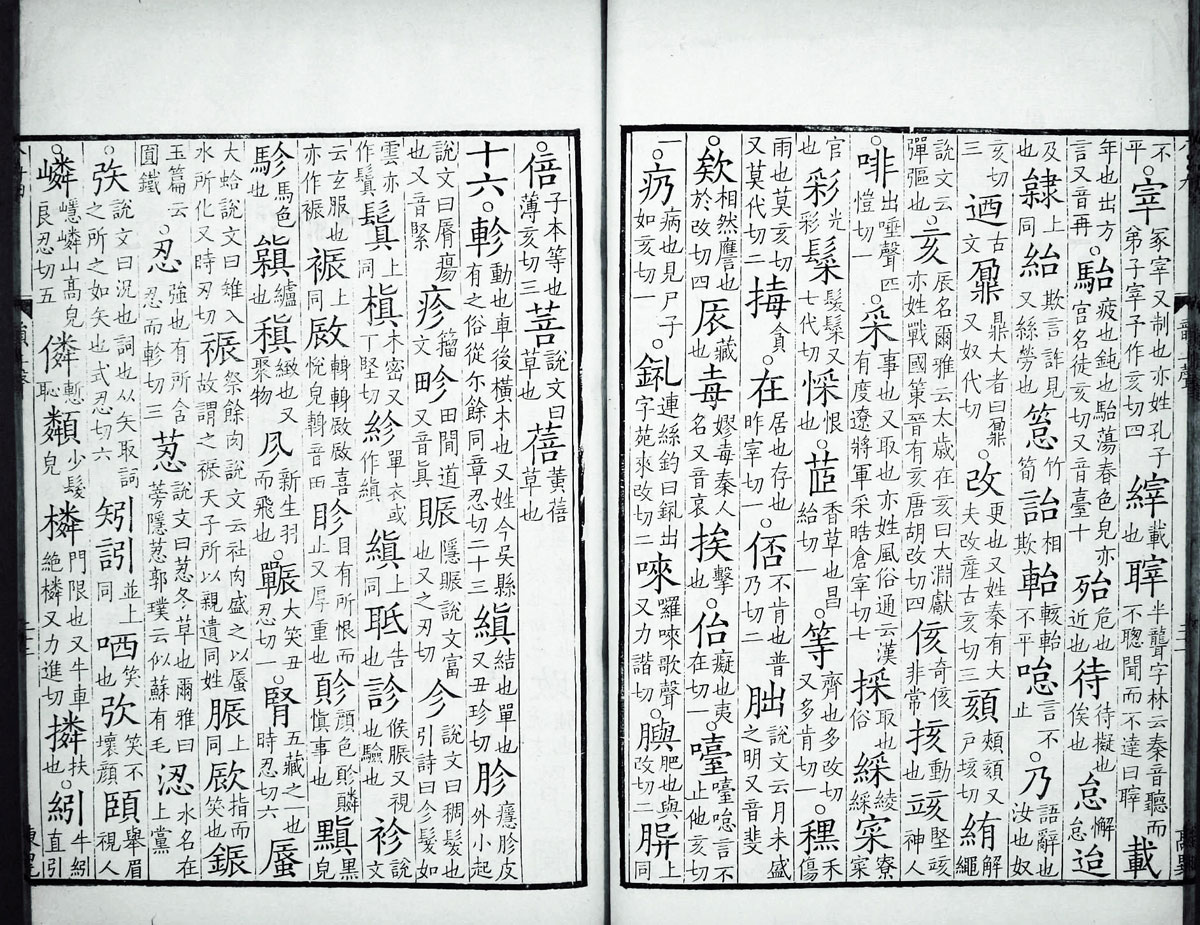 不平。宰冢宰又制也亦姓孔子弟子宰予作亥切四縡載也䏁半聾字林云秦音聽而不聰聞而不達曰䏁載
年也出方言又音再。駘疲也鈍也駘蕩春色皃亦宮名徒亥切又音臺十殆危也近也待待擬也俟也怠懈怠迨
及也隸上同紿欺言詐見又絲勞也䈚竹筍詒相欺軩輆軩不平㘆言不止。乃語辭也汝也又姓奴
亥切三迺古文鼐鼎大者曰鼐又奴代切。改更也又姓秦有大夫改産古亥切三頦頰頦又戶垓切絠解繩
說文云彈彄也。亥辰名爾雅云太歲在亥曰大淵獻亦姓戰國策晉有亥唐胡改切四侅奇侅非常㧡動也㱾堅㱾神人
。啡出唾聲匹愷切一。采事也又取也亦姓風俗通云漢有度遼將軍采晧倉宰切七採取也俗綵綾綵寀寮寀
官也彩光彩髤髮髤又七代切㥒恨也。茝香草也昌紿切一。等齊也多改切又多肯切一。䆀禾傷
雨也莫亥切又莫代切二挴貪。在居也存也昨宰切一。㑌不肯也普乃切二朏說文云月未盛之明又音斐
。欸相然譍也於改切四㕈藏也毐嫪毐秦人名又音哀挨擊也。佁癡也夷在切一。嚉嚉㘆言不止他亥切
一。疓病也見尸子如亥切一。釠連絲釣曰釠出字苑來改切二唻囉唻歌聲又力諧切。䑂肥也與改切二上同
。倍子本等也薄亥切三菩說文曰草也蓓黃蓓草也
十六。軫動也車後橫木也又姓今吳縣有之俗從尒餘同章忍切二十三縝結也單也又丑珍切胗癮胗皮外小起
說文曰脣瘍也又音緊疹籀文畛田間道又音眞賑隱賑說文富也又之刃切㐱說文曰稠髮也引詩曰㐱髮如
雲亦作鬒鬒上同槙木密又丁堅切紾單衣或作縝縝上同聄告也診候脈又視也驗也袗說文
云玄服也亦作裖裖上同喜悅皃音田眕目有所恨而止又厚重也顏色慎事也黰黑皃
駗馬色也纑也稹緻也又聚物新生羽而飛也。囅大笑丑忍切一。腎五藏之一也時忍切六蜃
大蛤說文曰雉入水所化又時刃切祳祭餘肉說文云社肉盛之以蜃故謂之祳天子所以親遺同姓脤上同指而笑也鋠
玉篇云圓鐵。忍強也有所含忍而軫切三荵說文曰荵冬草也爾雅曰蒡隱荵郭璞云似蘇有毛涊水名在上黨
。矤說文曰況也詞也从矢取詞之所之如矢也式忍切六矧訠並上同哂笑也弞笑不壞顏䫅舉眉視人
。嶙嶾嶙山高皃良忍切五僯慙恥少髮皃橉門限也又牛車絕橉又力進切撛扶也。紖牛紖直引